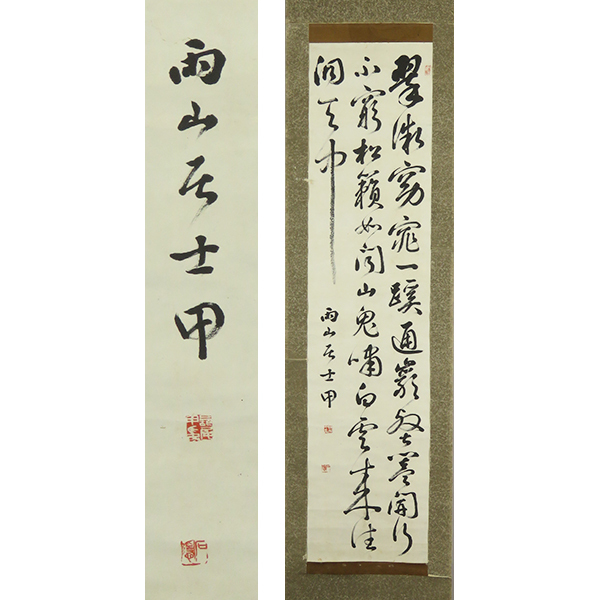 雨山居士甲
翠微窈窕一蹊通開行
不窮松籟如聞山鬼嘯白雲來往
洞天中
雨山居士甲